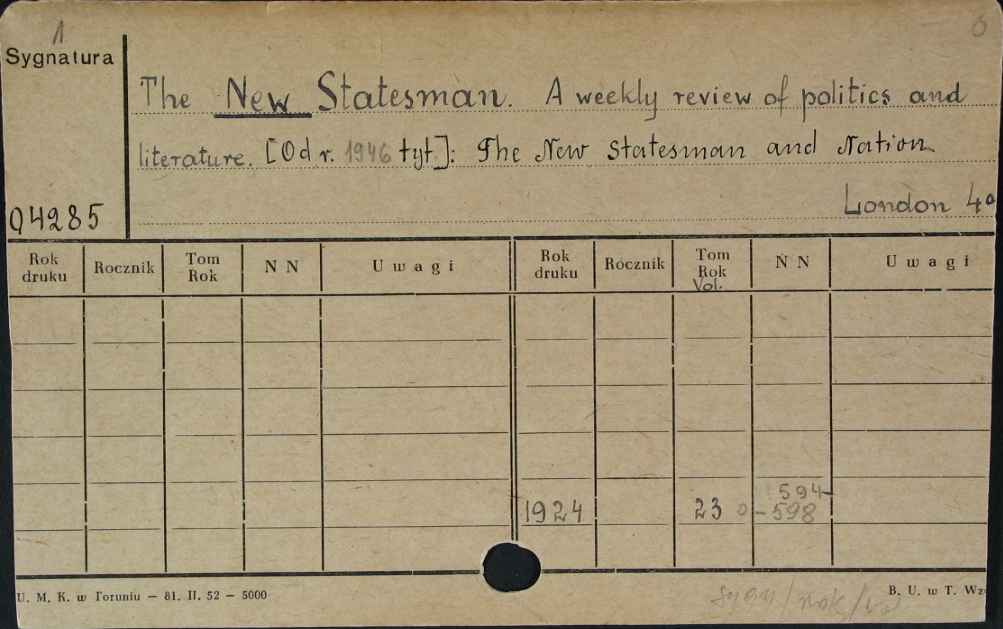 1
6
Sygnatura
The New Statesman. A weekly review of politics and
literature. [Od r. 1946 tyt.]: The New Statesman and Nation
London 4°
04285
Rok druku Rocznik Tom Rok NN Uwagi Rok druku Rocznik Tom Rok Vol. NN Uwagi
594-
1924 23 0-598
U. M. K. w Toruniu — 81. II. 52 — 5000
B. U. w T. Wz